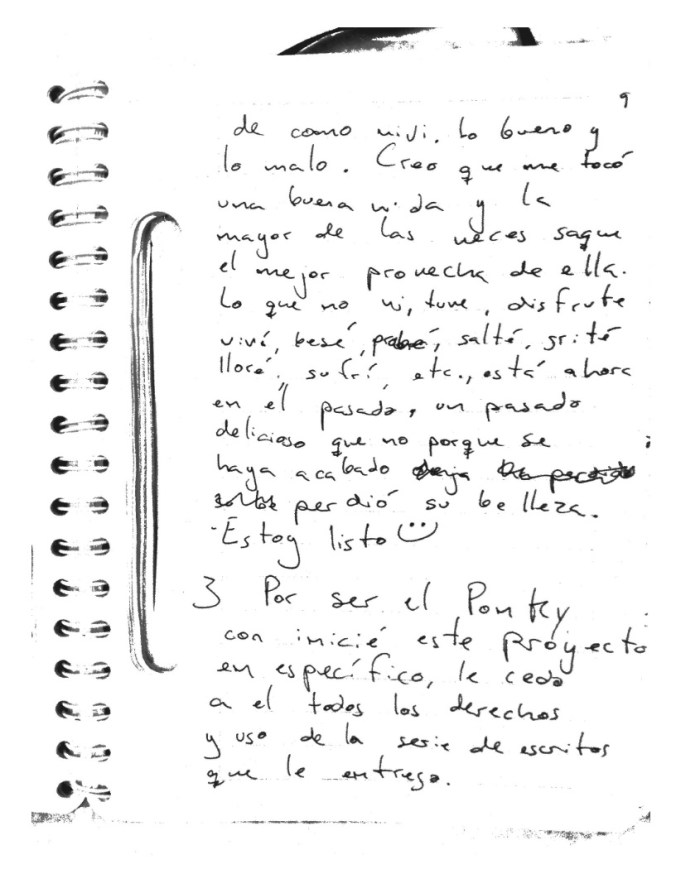 9
de como viví, lo bueno y
lo malo. Creo que me tocó
una buena vida y la
mayor de las veces saque
el mejor provecho de ella.
Lo que no vi, tuve, disfrute
viví, besé, probé, salté, grité
lloré, sufrí, etc., está ahora
en el pasado, un pasado
delicioso que no porque se
haya acabado
perdió su belleza.
Estoy listo
3 Por ser el Ponkey
con inicié este proyecto
en específico, le cedo
a el todos los derechos
y uso de la serie de escritos
que le entrego.